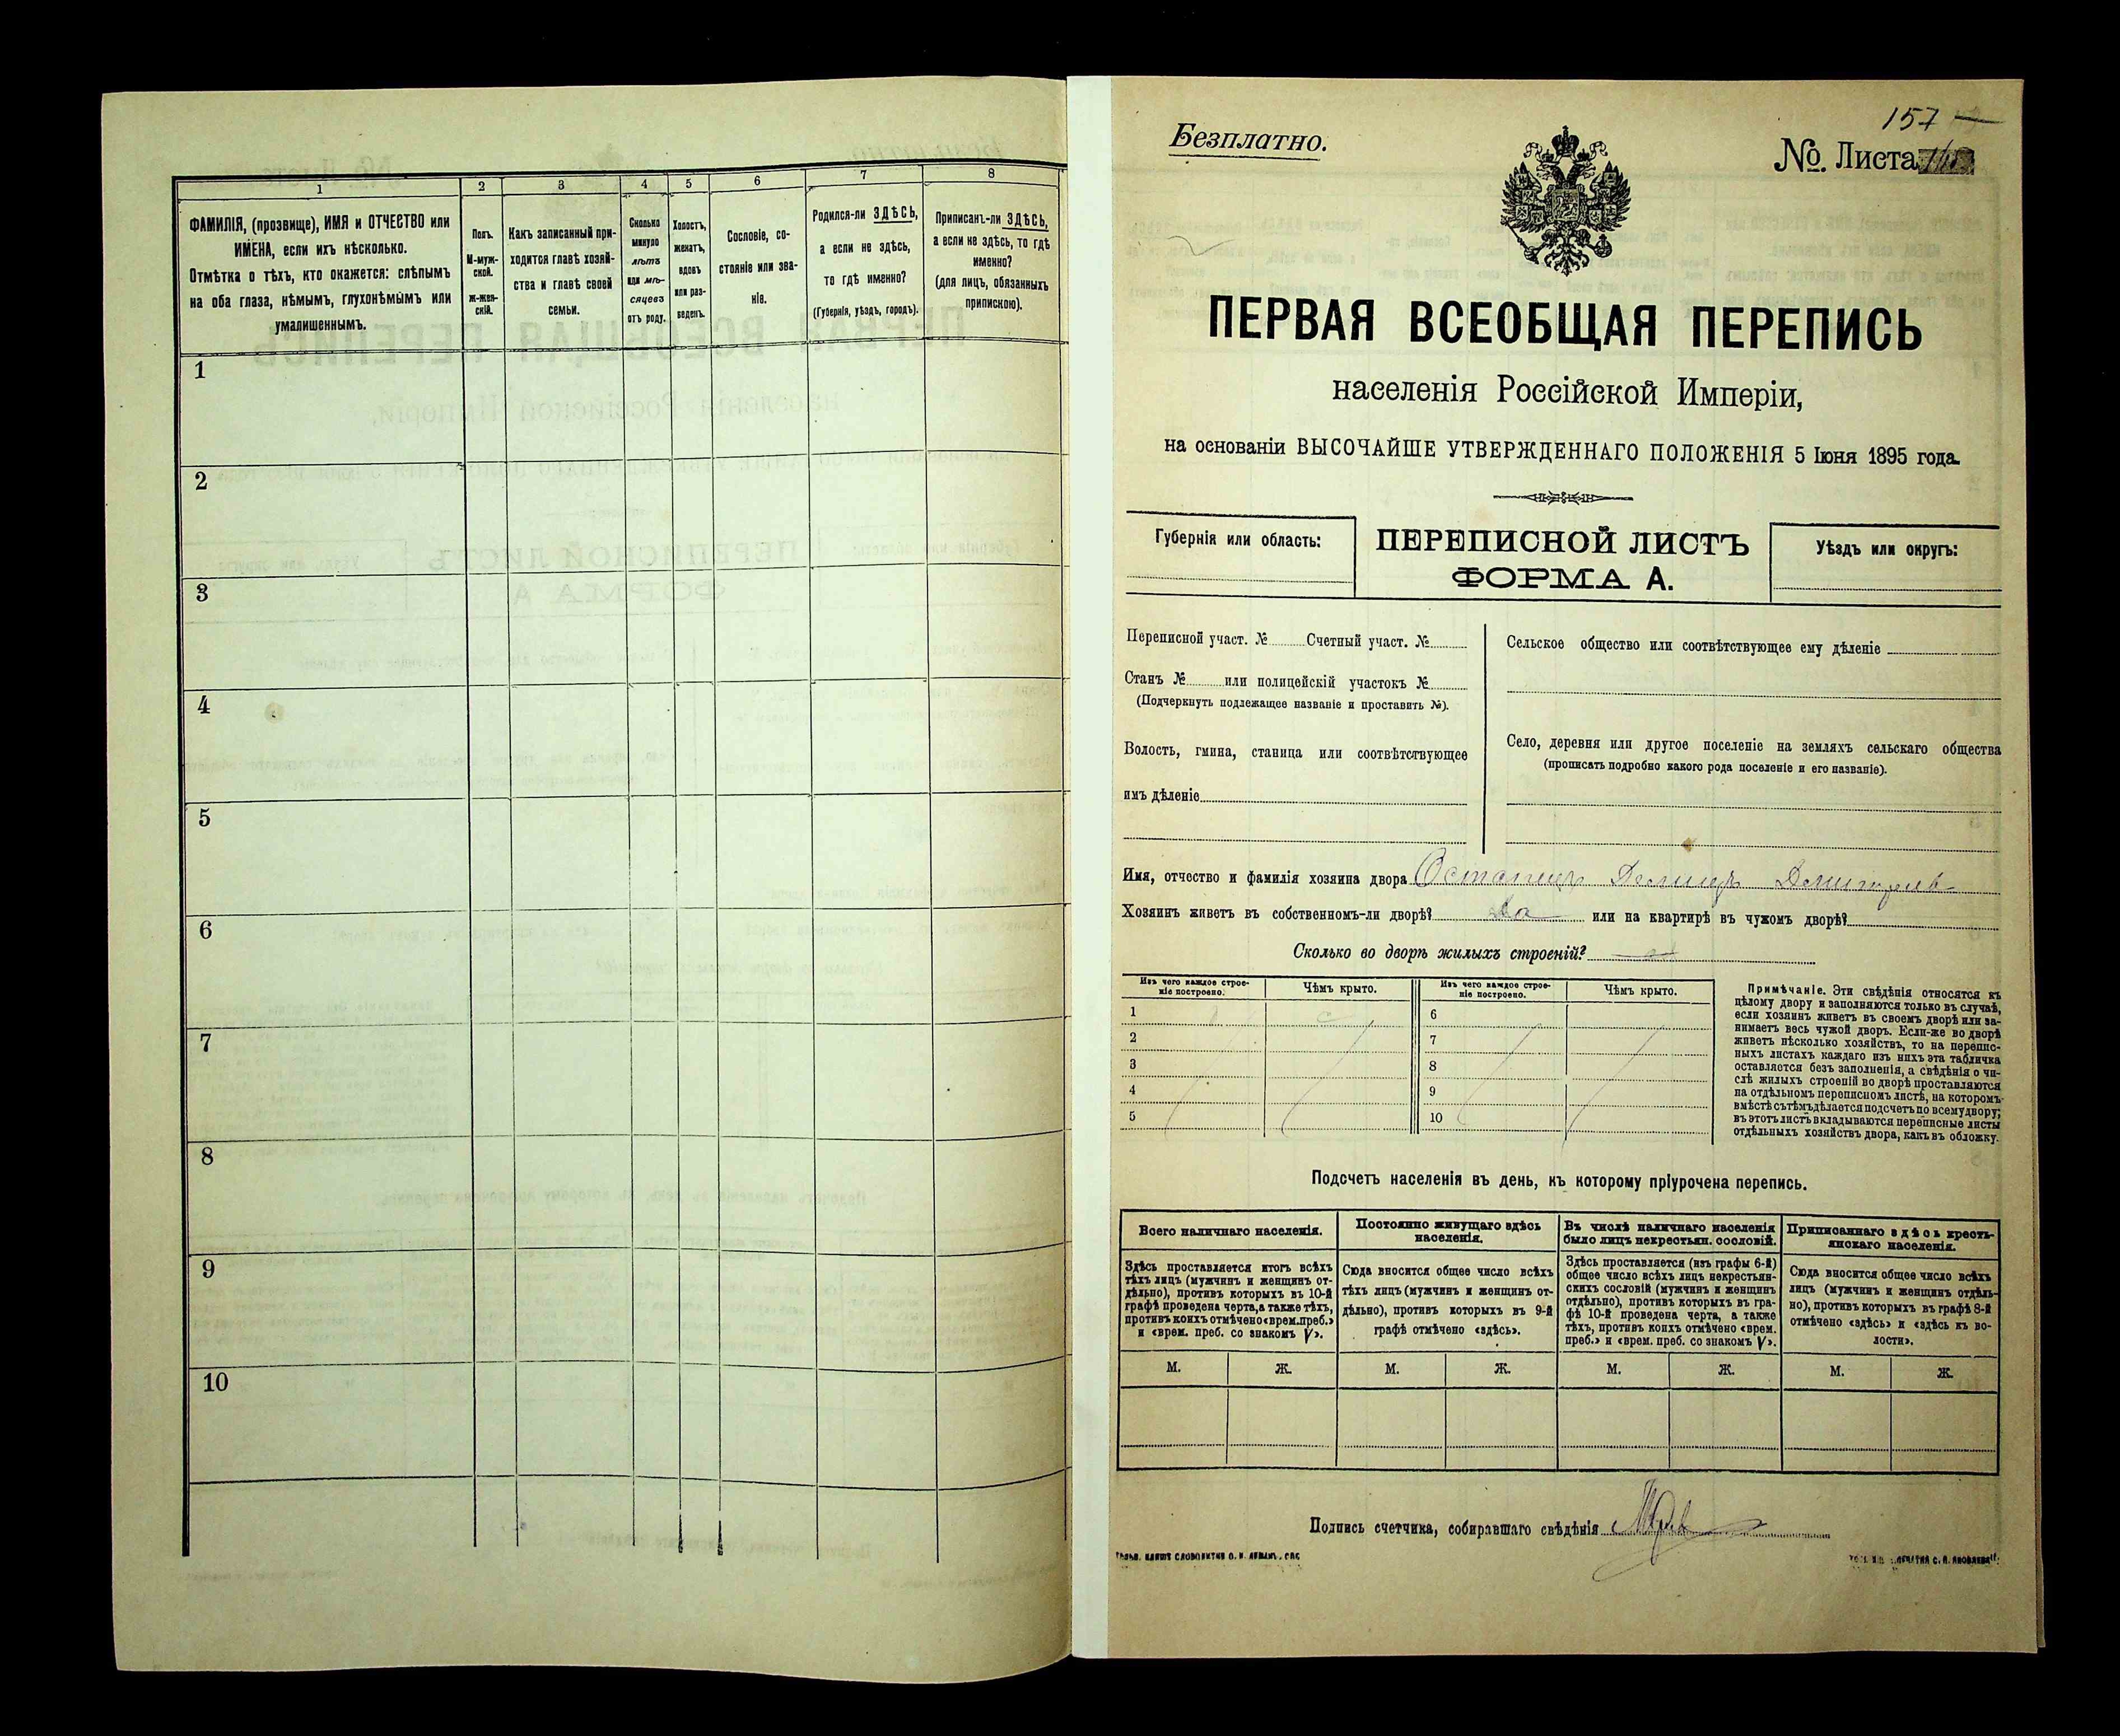 1
2
3
4
5
6
7
8
ФАМИЛІЯ, (прозвище), ИМЯ и ОТЧЕСТВО или
ИМЕНА, если ихъ нѣсколько.
Отмѣтка о тѣхъ, кто окажется: слѣпымъ
на оба глаза, нѣмымъ, глухонѣмымъ или
умалишеннымъ.
Полъ.
М-муж-
ской.
ж-жен-
скій.
Какъ записанный при-
ходится главѣ хозяй-
ства и главѣ своей
семьи.
Сколько
минуло
лѣтъ
или мѣ-
сяцевъ
отъ роду.
Холостъ,
женатъ,
вдовъ
или раз-
веденъ.
Сословіе, со-
стояніе или зва-
ніе.
Родился-ли ЗДѢСЬ,
а если не здѣсь,
то гдѣ именно?
(Губернія, уѣздъ, городъ).
Приписанъ-ли ЗДѢСЬ,
а если не здѣсь, то гдѣ
именно?
(для лицъ, обязанныхъ
припискою).
1
2
3
4
5
6
7
8
9
10
157
Безплатно.
№. Листа
ПЕРВАЯ ВСЕОБЩАЯ ПЕРЕПИСЬ
населенія Россійской Имперіи,
на основаніи ВЫСОЧАЙШЕ УТВЕРЖДЕННАГО ПОЛОЖЕНІЯ 5 Іюня 1895 года.
Губернія или область:
ПЕРЕПИСНОЙ ЛИСТЪ
ФОРМА А.
Уѣздъ или округъ:
Переписной участ. № Счетный участ. №
Станъ № или полицейскій участокъ №
(Подчеркнуть подлежащее названіе и проставить №).
Волость, гмина, станица или соотвѣтствующее
имъ дѣленіе
Сельское общество или соотвѣтствующее ему дѣленіе
Село, деревня или другое поселеніе на земляхъ сельскаго общества
(прописать подробно какого рода поселеніе и его названіе).
Имя, отчество и фамилія хозяина двора
Хозяинъ живетъ въ собственномъ-ли дворѣ? Да или на квартирѣ въ чужомъ дворѣ?
Сколько во дворѣ жилыхъ строеній?
Изъ чего каждое строе-
ніе построено.
Чѣмъ крыто.
Изъ чего каждое строе-
ніе построено.
Чѣмъ крыто.
1
2
3
4
5
6
7
8
9
10
Примѣчаніе. Эти свѣдѣнія относятся къ
цѣлому двору и заполняются только въ случаѣ,
если хозяинъ живетъ въ своемъ дворѣ или за-
нимаетъ весь чужой дворъ. Если-же во дворѣ
живетъ нѣсколько хозяйствъ, то на перепис-
ныхъ листахъ каждаго изъ нихъ эта табличка
оставляется безъ заполненія, а свѣдѣнія о чи-
слѣ жилыхъ строеній во дворѣ проставляются
на отдѣльномъ переписномъ листѣ, на которомъ
вмѣстѣ съ тѣмъ дѣлается подсчетъ по всему двору;
въ этотъ листъ вкладываются переписные листы
отдѣльныхъ хозяйствъ двора, какъ въ обложку.
Подсчетъ населенія въ день, къ которому пріурочена перепись.
Всего наличнаго населенія.
Постоянно живущаго здѣсь
населенія.
Въ числѣ наличнаго населенія
было лицъ некрестьян. сословій.
Приписаннаго здѣсь кресть-
янскаго населенія.
Здѣсь проставляется итогъ всѣхъ
тѣхъ лицъ (мужчинъ и женщинъ от-
дѣльно), противъ которыхъ въ 10-й
графѣ проведена черта, а также тѣхъ,
противъ коихъ отмѣчено «врем. преб.»
и «врем. преб. со знакомъ V».
Сюда вносится общее число всѣхъ
тѣхъ лицъ (мужчинъ и женщинъ от-
дѣльно), противъ которыхъ въ 9-й
графѣ отмѣчено «здѣсь».
Здѣсь проставляется (изъ графы 6-й)
общее число всѣхъ лицъ некрестьян-
скихъ сословій (мужчинъ и женщинъ
отдѣльно), противъ которыхъ въ гра-
фѣ 10-й проведена черта, а также
тѣхъ, противъ коихъ отмѣчено «врем.
преб.» и «врем. преб. со знакомъ V».
Сюда вносится общее число всѣхъ
лицъ (мужчинъ и женщинъ отдѣль-
но), противъ которыхъ въ графѣ 8-й
отмѣчено «здѣсь» и «здѣсь къ во-
лости».
М.
Ж.
М.
Ж.
М.
Ж.
М.
Ж.
Подпись счетчика, собиравшаго свѣдѣнія